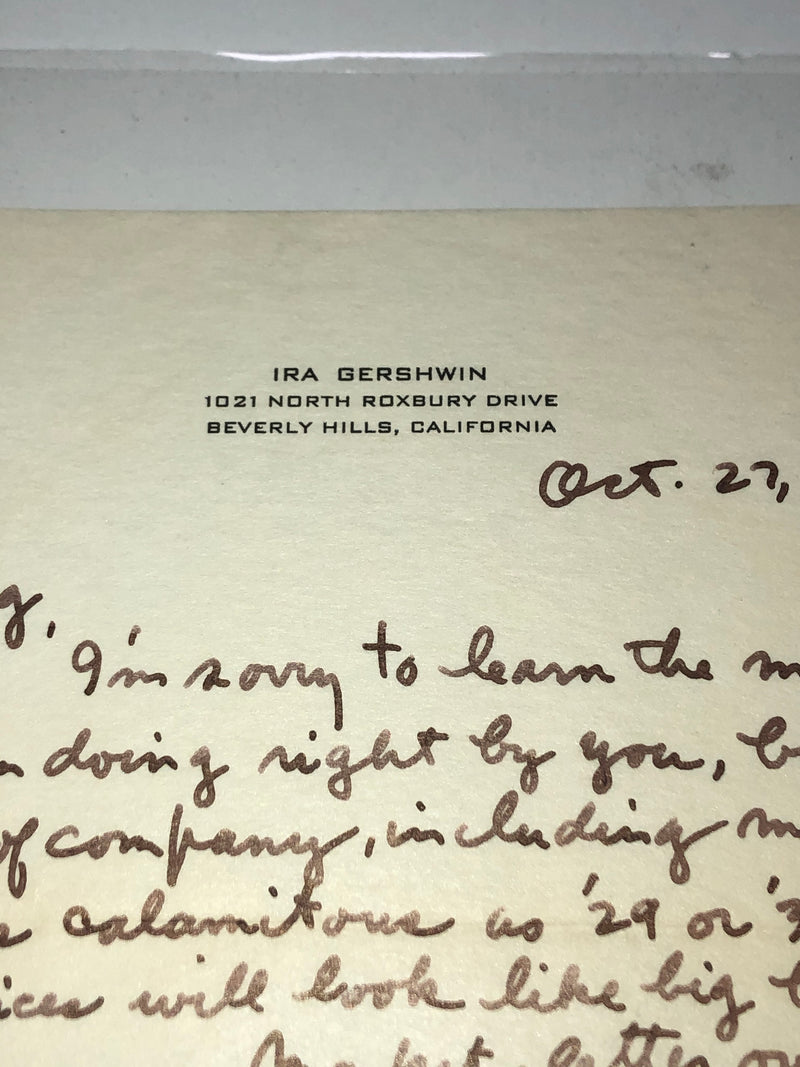 IRA GERSHWIN
1021 NORTH ROXBURY DRIVE
BEVERLY HILLS, CALIFORNIA
Oct. 27,
g,
I'm sorry to learn the m
n doing right by you, b
of company, including m
calamitous as '29 or '3
ices will look like big b